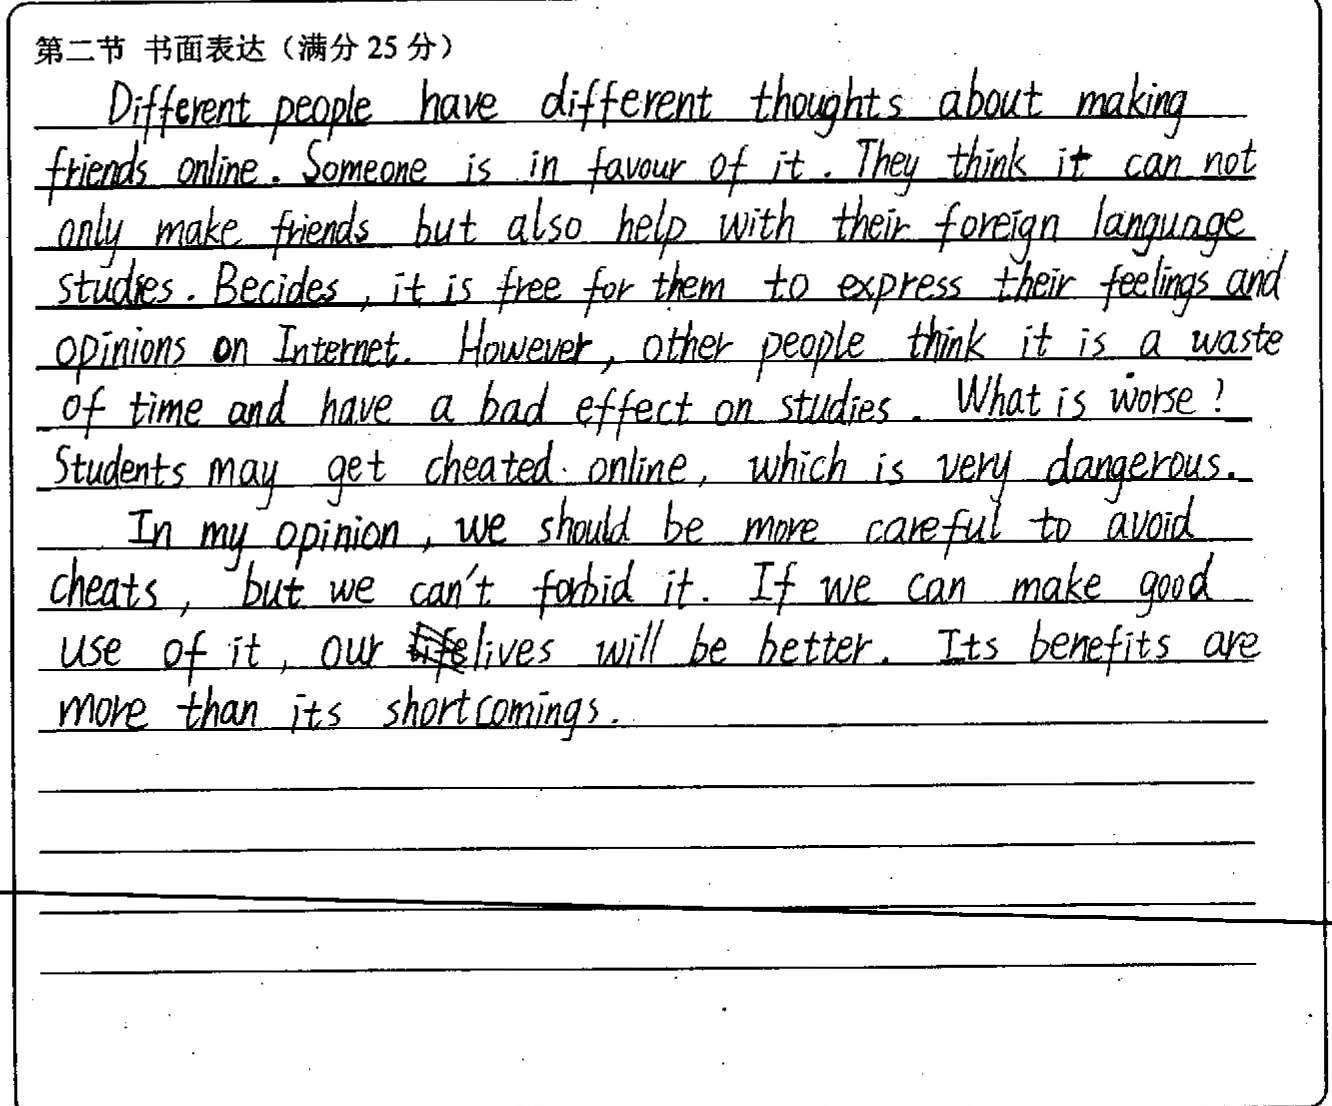 第二节 书面表达（满分 25 分）
Different people have different thoughts about making
friends online. Someone is in favour of it. They think it can not
only make friends but also help with their foreign language
studies. Becides, it is free for them to express their feelings and
opinions on Internet. However, other people think it is a waste
of time and have a bad effect on studies. What is worse?
Students may get cheated online, which is very dangerous.
In my opinion, we should be more careful to avoid
cheats, but we can't forbid it. If we can make good
use of it, our lives will be better. Its benefits are
more than its shortcomings.